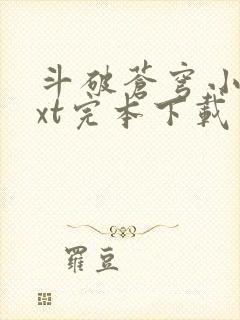 斗破蒼穹小
xt完本下載
羅豆